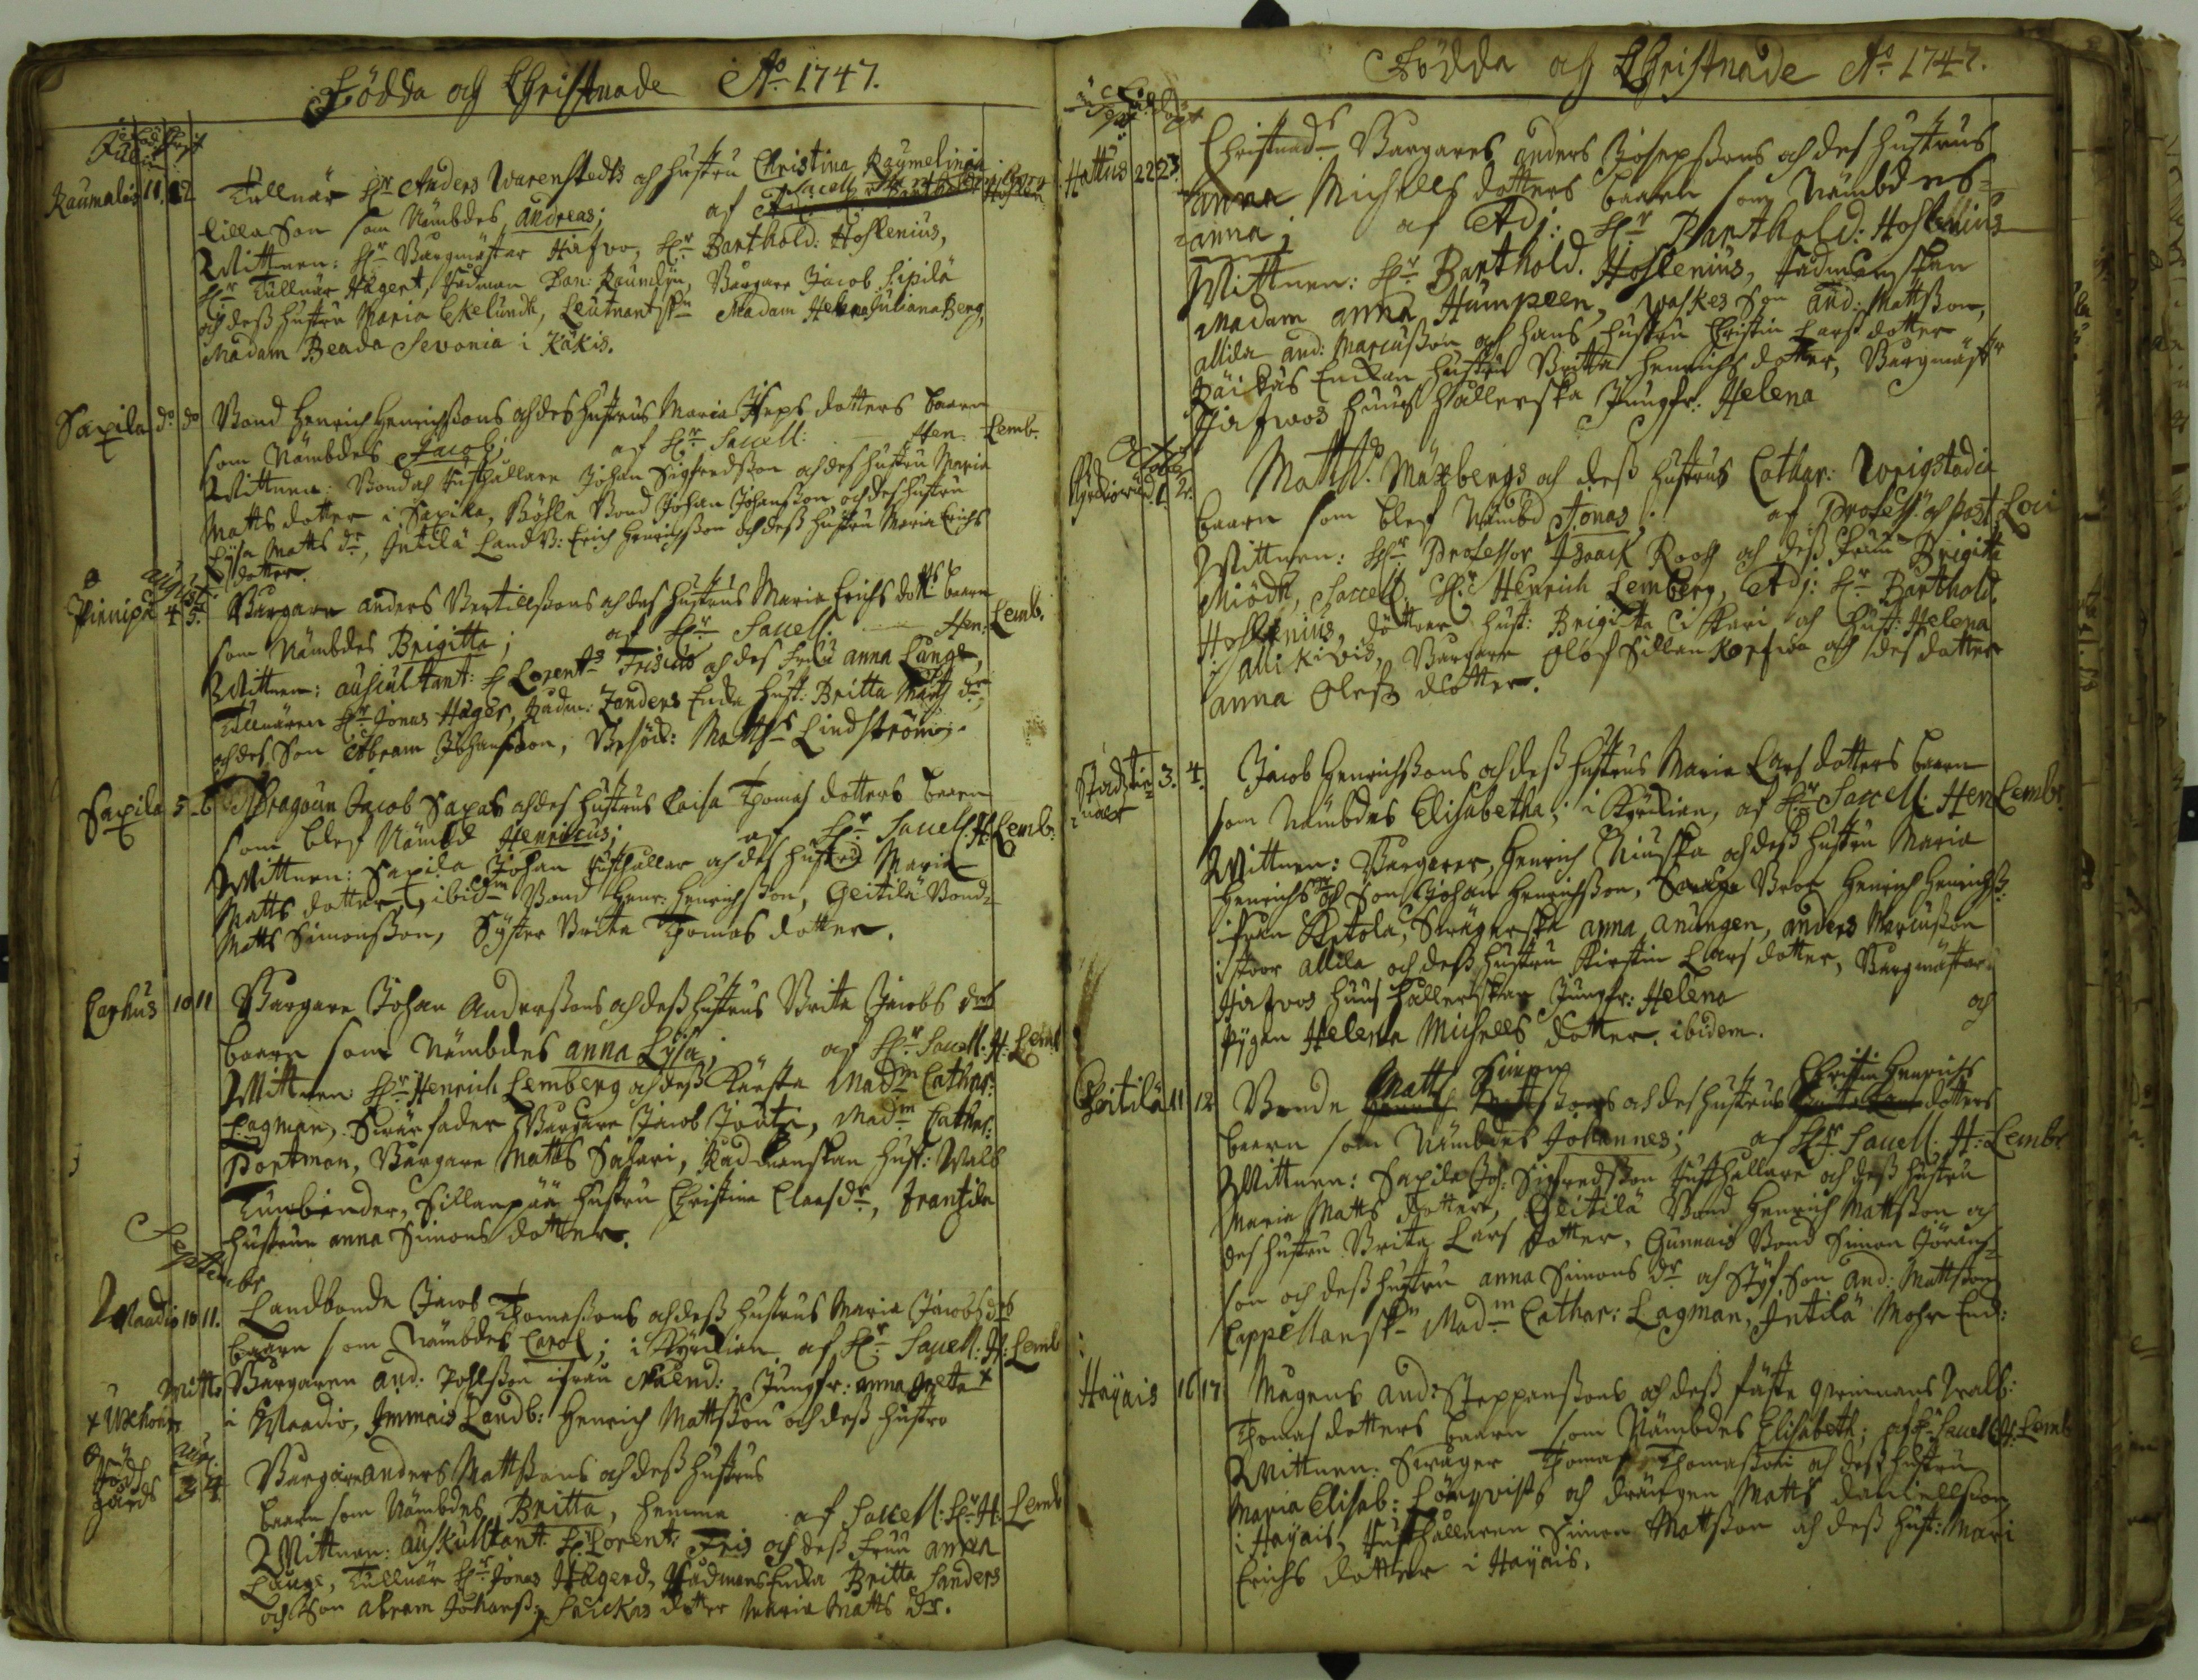 Födda och Christnade Ao 1747.
Föd Christ
Julii
Raumalais 11. 12. Tullnär Hr Anders Warenstedts och hustru Christina Raumelinia
lilla Son som Nämbdes Andreas; af
Wittnen: Hr Borgmästar Hiafvo, Hr Barthold: Hoslenius,
Hr Tullnär Hägert, Rådman Dan: Raumelin, Borgare Jacob Sipilä
och dess hustru Maria Ekelundh, Leutnantskn Madam Helena Juliana Berg,
Madam Beada Sevonia i Käkis.
Saxila do do Bond Henrich Henrichssons och des hustrus Maria Jseps dotters baarn
som Nämbdes Jacob; af Hr Sacell: Hen: Lemb.
Wittnen: Bond och Rusthållare Johan Sigfredsson och des hustru Maria
Matts dotter i Saxila, Böhle Bond Johan Johansson och des hustru
Lysa Matts dr, Intilä LandB: Erich Henrichsson och dess hustru Maria Erichs
dotter.
August:
Pirnipä 4 5. Borgare Anders Bertillssons och des hustrus Maria Erichs dottr baarn
som Nämbdes Brigitta; af Hr Sacell: Hen: Lemb.
Wittnen: Auscultant: H Lorents Frisius och des Fru Anna Lange,
Tullnären Hr Jonas Häger, Rådm: Zanders Enka hust: Britta Matts dr,
och des Son Abram Johansson, Besök: Matths Lindström.
Saxila 5 6 Dragoun Jacob Saxas och des hustrus Caisa Thomas dotters baarn
som blef Nämbd Henricus; af Hr Sacell. H. Lemb.
Wittnen: Saxila Johan Rusthållar och des hustru Maria
Matts dotter, ibidm Bond Henr: Henrichsson, Geitilä Bond
Matts Simonsson, Syster Brita Thomas dotter.
Carhus 10 11 Borgare Johan Anderssons och dess hustrus Brita Jacobs dottr
baarn som Nämbdes Anna Lysa; af Hr Sacell. H: Lemb
Wittnen: Hr Henrich Lemberg och dess Käresta Madm Cathar:
Lagman, Swärfader Borgare Jacob Joutzi, Madm Cathar:
Portman, Borgare Matts Safari, Rådmanskan hust: Walb
Tunbinder, Sillanpää hustru Christina Claesdr, Frantzila
hustrun Anna Simons dotter.
Septembr
Maadis 10 11. Landbonde Jacob Thomassons och dess hustrus Maria Jacobs drs
baarn som Nämbdes Carol; i Kyrkian af Hr Sacell: H: Lemb
Wittn: Borgaren And: Pohlsson ifrån Nåend: Jungfr: Anna Greta +
i Maadis, Immais Landb: Henrich Mattsson och dess hustro
Aug.
3 4 Borgare Anders Mattssons och dess hustrus
baarn som Nämbdes Britta, hemma af Sacell: Hr H: Lemb
Wittnen: Auskultant: H: Lorents Fris och dess Fru Anna
Lange, Tullnär Hr Jonas Hägerd, Rådmans Enka Britta Sanders
och Son Abram Johanss: Saickas dotter Maria Matts dr.
Födda och Christnade Ao 1747.
Hattus 22 23. Christnads Borgares Anders Josepssons och des hustrus
Anna Michells dotters baarn som Nämbdes
Anna; af Adj: Hr Barthold: Hoslenius
Wittnen: Hr Barthold. Hoslenius, Rådmanskan
Madam Anna Humpeen, Walkes Son And: Mattsson,
Allila And: Marcusson och hans hustru Christin Larsdotter
Päikäs Enkan hustru Britta Henrichs dotter, Borgmästr
Hiafwos huus hållerska Jungfr: Helena
October
1. 2. Matths Maxbergs och dess hustrus Cathar: Wrigstadia
baarn som blef Nämbd Jonas; af Profess: och Past: Loci
Wittnen: Hr Professor Isaack Rooss och dess Fruu Brigitta
Miödh, Sacell: Hr Henrich Lemberg, Adj: Hr Barthold.
Hoslenius, döttrer hust: Brigitta i Kari och hust: Helena
i Allikivis, Borgare Olof Sillan Korfwa och des dotter
Anna Olofs dotter.
3. 4. Jacob Henrichssons och dess hustrus Maria Lars dotters baarn
som Nämbdes Elisabetha; i Kyrkian, af Hr Sacell: Hen Lemb.
Wittnen: Borgarer, Henrich Niuska och dess hustru Maria
Henrichs dr och Son Johan Henrichsson, Bror Henrich Henrichss:
ifrån Ketola, Swägerska Anna Anungen, Anders Marcusson
i Stor Allila och dess hustru Kirstin Lars dotter, Borgmästar
Hiafwos huus hållerskan Jungfr: Helena och
Pygan Helena Michells dotter. ibidem.
Geitilä 11 12 Bonde Matts Simons och des hustrus Christin Henrichs dotters
baarn som Nämbdes Johannes; af Hr Sacell. H: Lemb.
Wittnen: Saxila Joh: Sigfredsson Rusthållare och dess hustru
Maria Matts dotter, Geitilä Bond Henrich Mattsson och
des hustru Brita Lars dotter, Gunnais Bond Simon Jörans
son och dess hustru Anna Simons dr och Styfson And: Mattsson
Cappellanskn Madm Cathar: Lagman, Intilä Mohr Enk:
Hayais 16 17 Magens And: Stephanssons och dess fäste qwinnans Walb:
Thomas dotters baarn som Nämbdes Elisabeth; af Hr Sacell. H: Lemb
Wittnen: Swåger Thomas Thomasson och dess hustru
Maria Elisab: Lönqvists och drängen Matts Daniellsson
i Hayais, Rusthållaren Simon Mattsson och dess hust: Mari
Erichs dotter i Hayais.